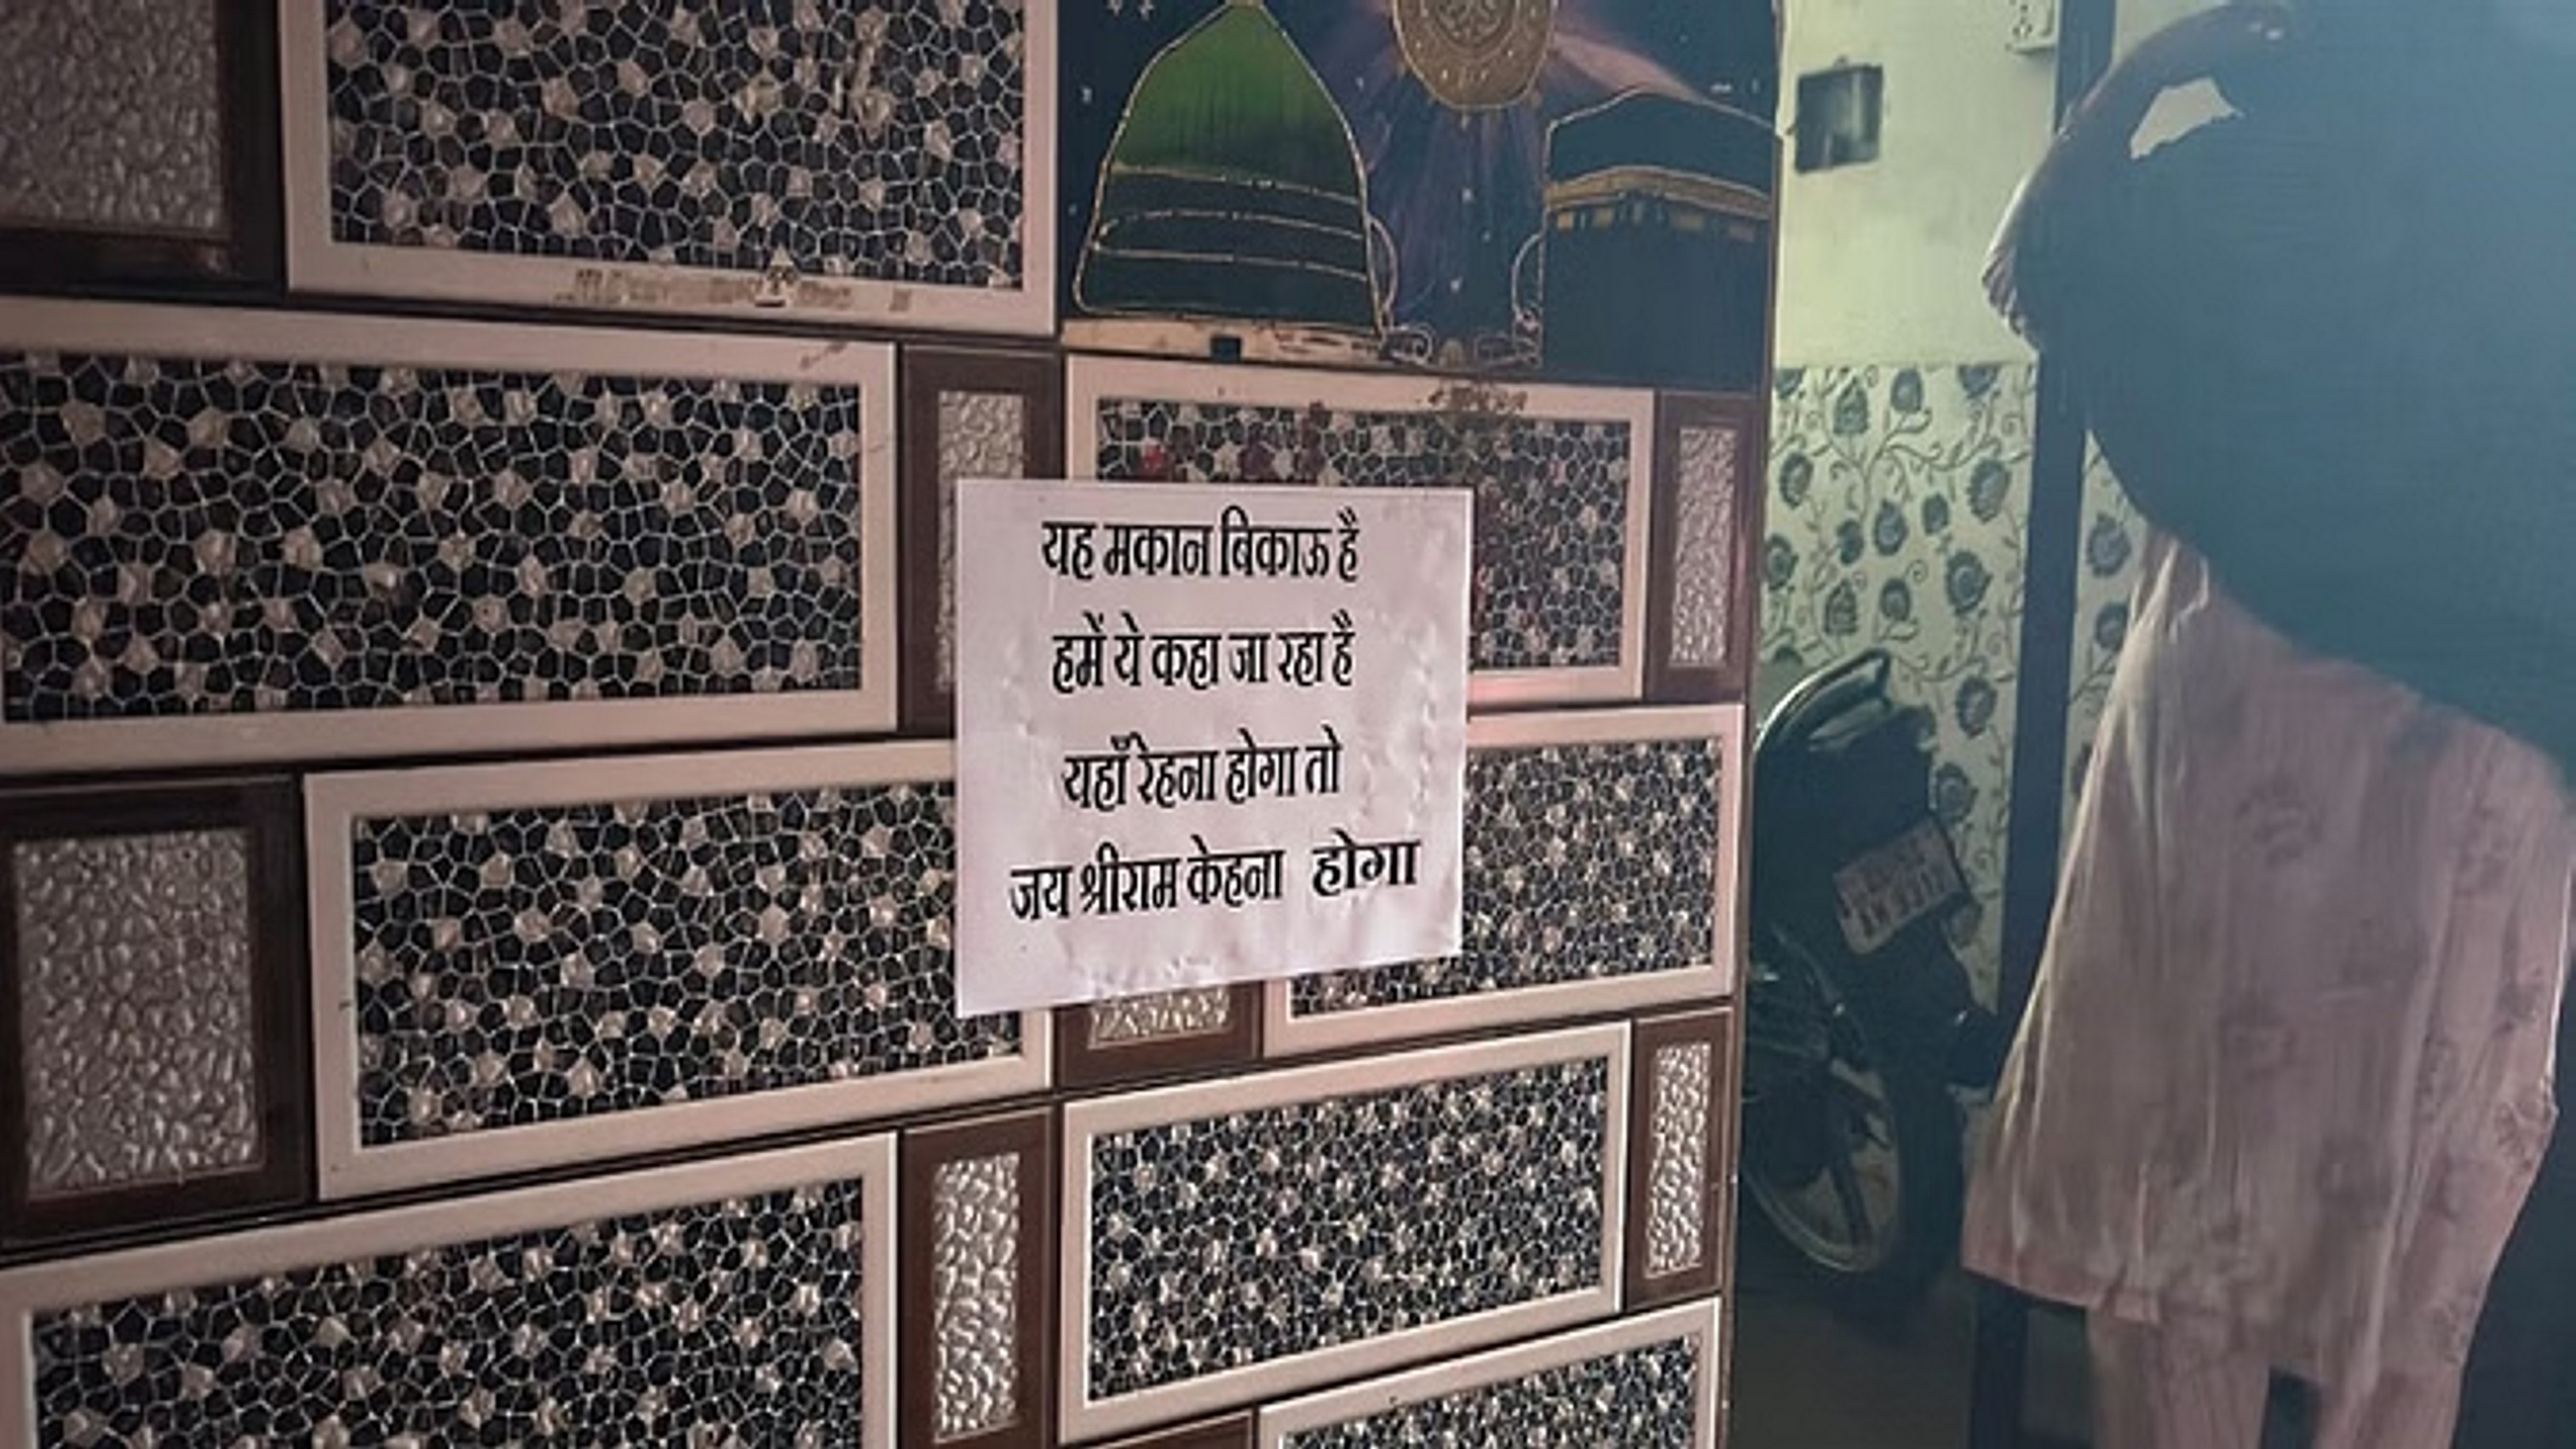 यह मकान बिकाऊ है
हमें ये कहा जा रहा है
यहाँ रेहना होगा तो
जय श्रीराम केहना होगा